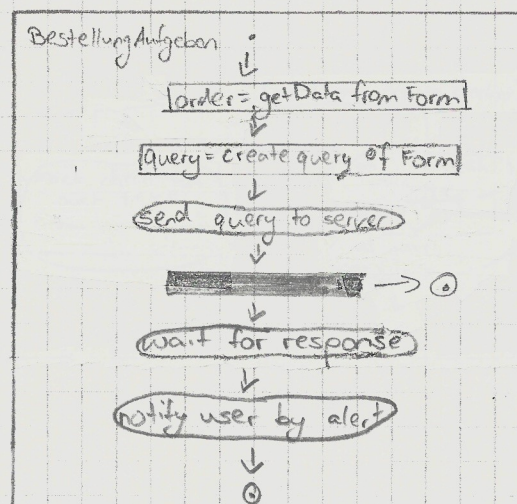 BestellungAufgeben
order = getData from Form
query = create query of Form
send query to server
wait for response
notify user by alert